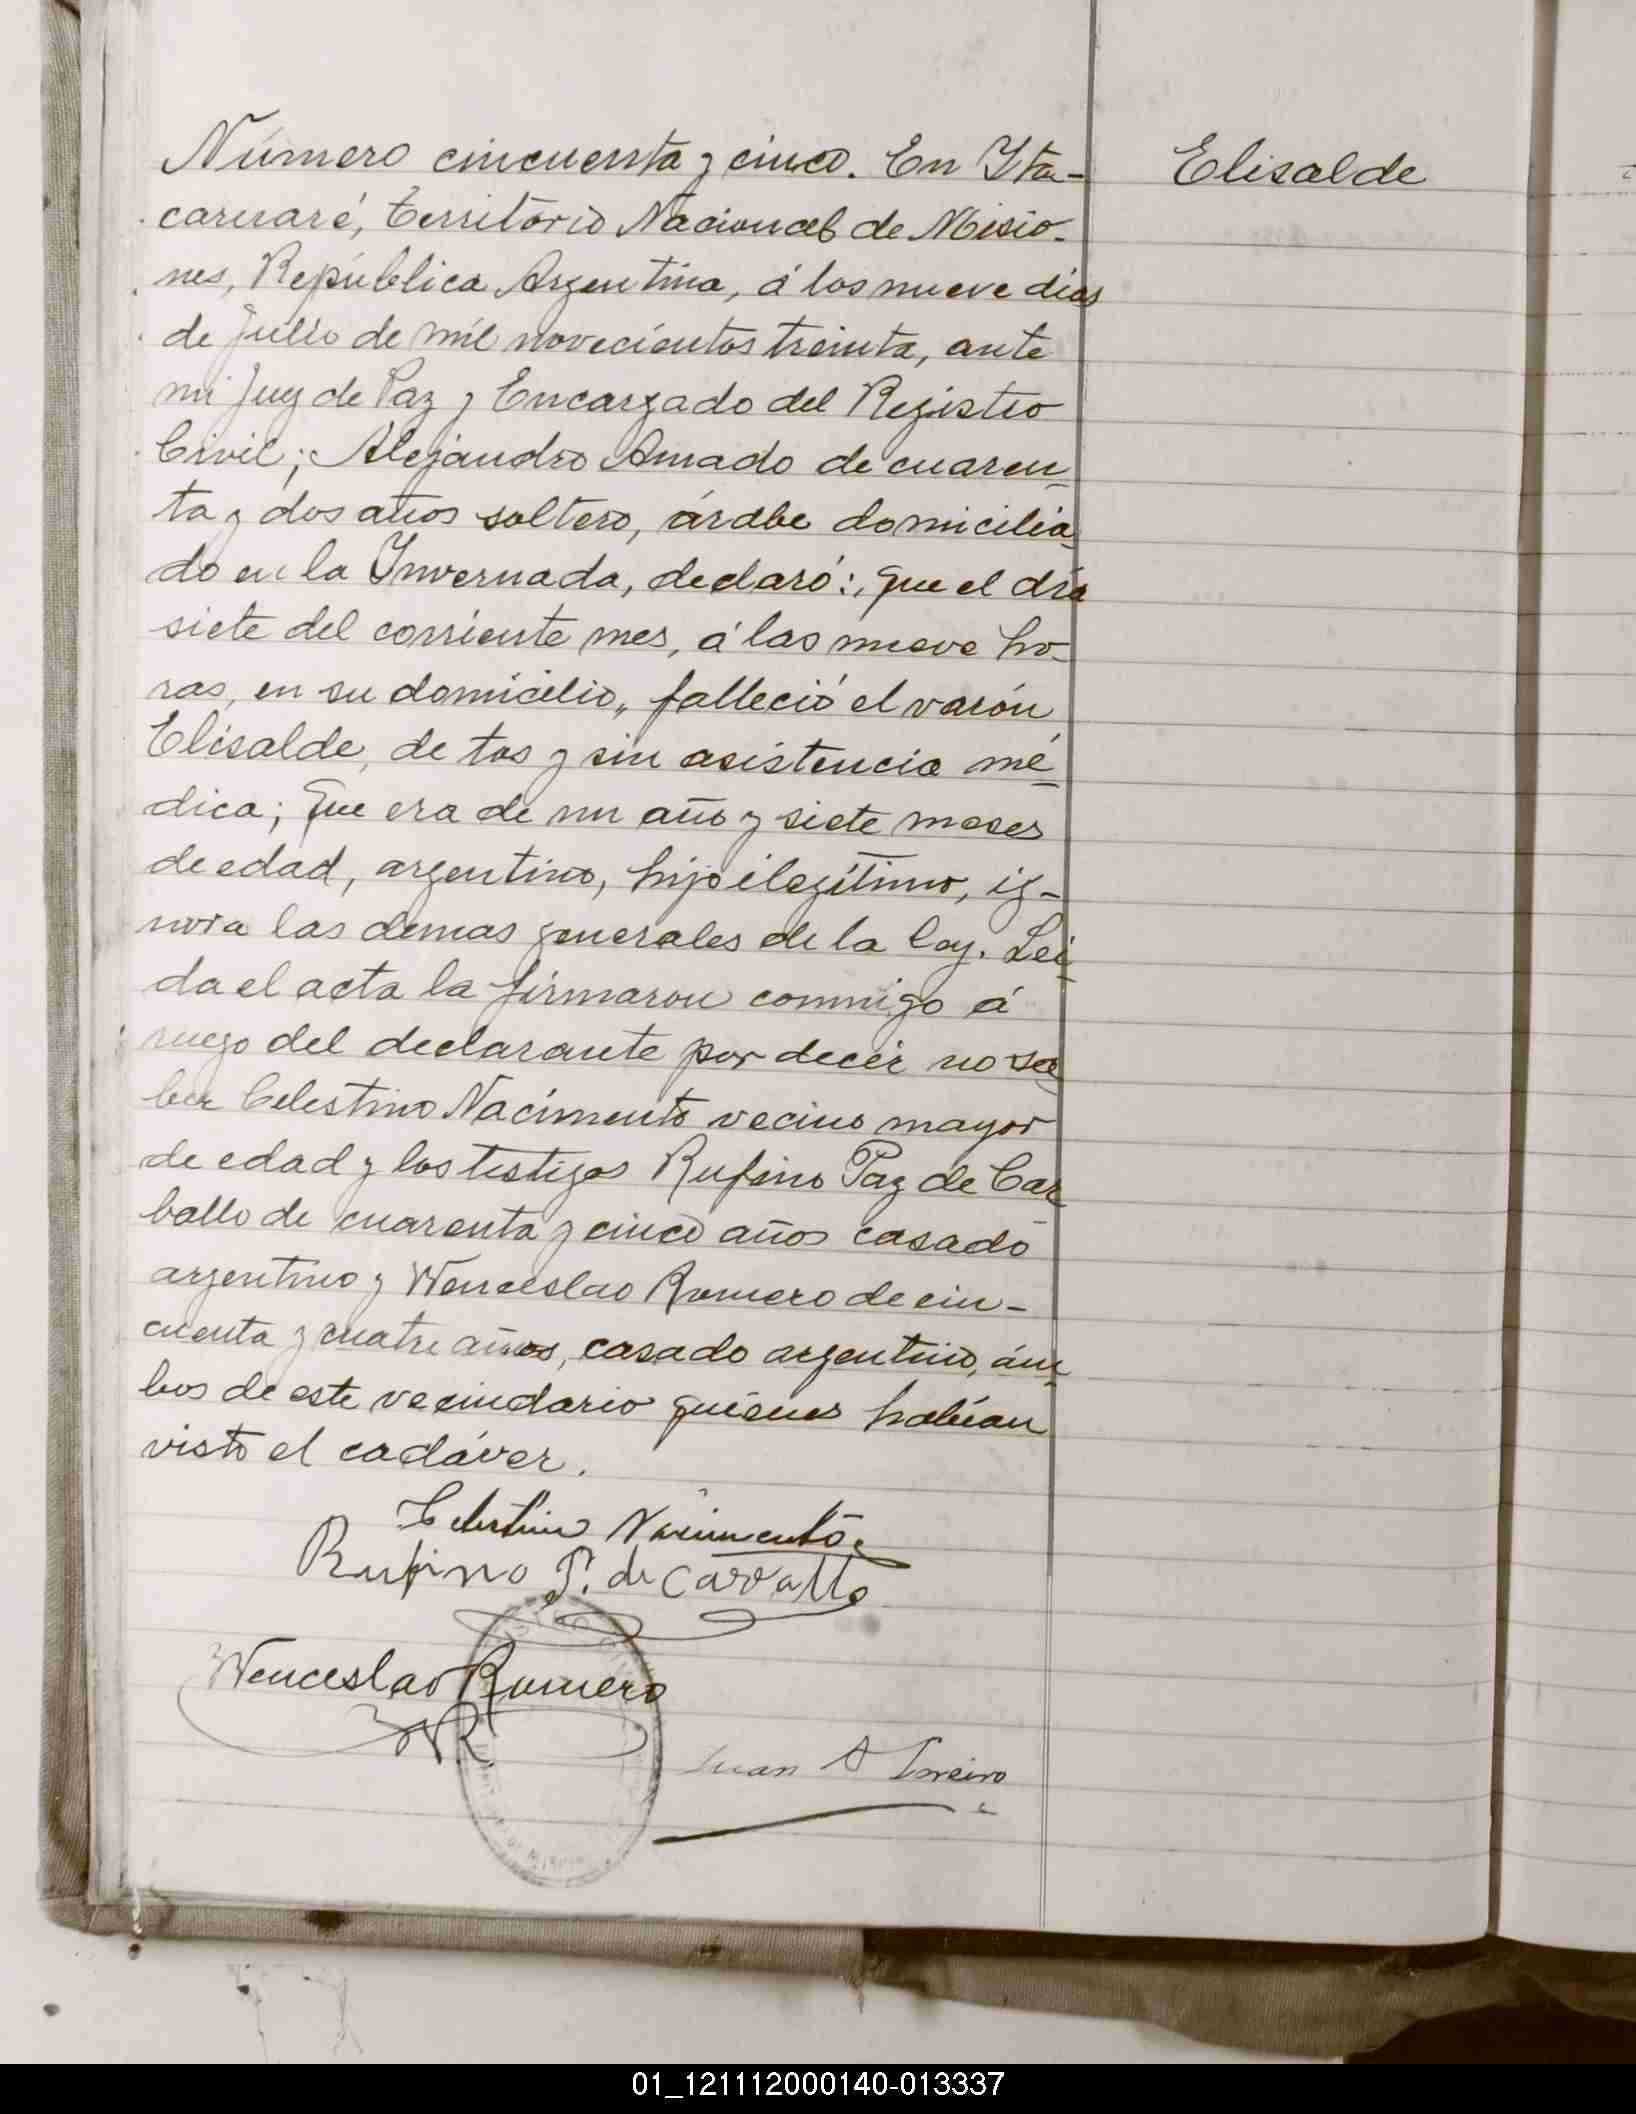 Número cincuenta y cinco. En Ita-
Elisalde
caruaré, Territorio Nacional de Misio-
nes, República Argentina, á los nueve dias
de Julio de mil novecientos treinta, ante
mi Juez de Paz y Encargado del Registro
Civil; Alejandro Amado de cuaren-
ta y dos años soltero, árabe domicilia-
do en la Invernada, declaró:, que el día
siete del corriente mes, á las nueve ho-
ras, en su domicilio, falleció el varón
Elisalde, de tos y sin asistencia mé-
dica; que era de un año y siete meses
de edad, argentino, hijo ilegítimo, ig-
nora las demas generales de la ley. Lei-
da el acta la firmaron conmigo á
ruego del declarante por decir no sa-
ber Celestino Nacimento vecino mayor
de edad y los testigos Rufino Paz de Car
ballo de cuarenta y cinco años casado
argentino y Wenceslao Romero de cin-
cuenta y cuatro años, casado argentino, ám-
bos de este vecindario quiénes habían
visto el cadáver.
Celestino Nacimento
Rufino P. de Carvallo
Wenceslao Romero
WR
Juan A